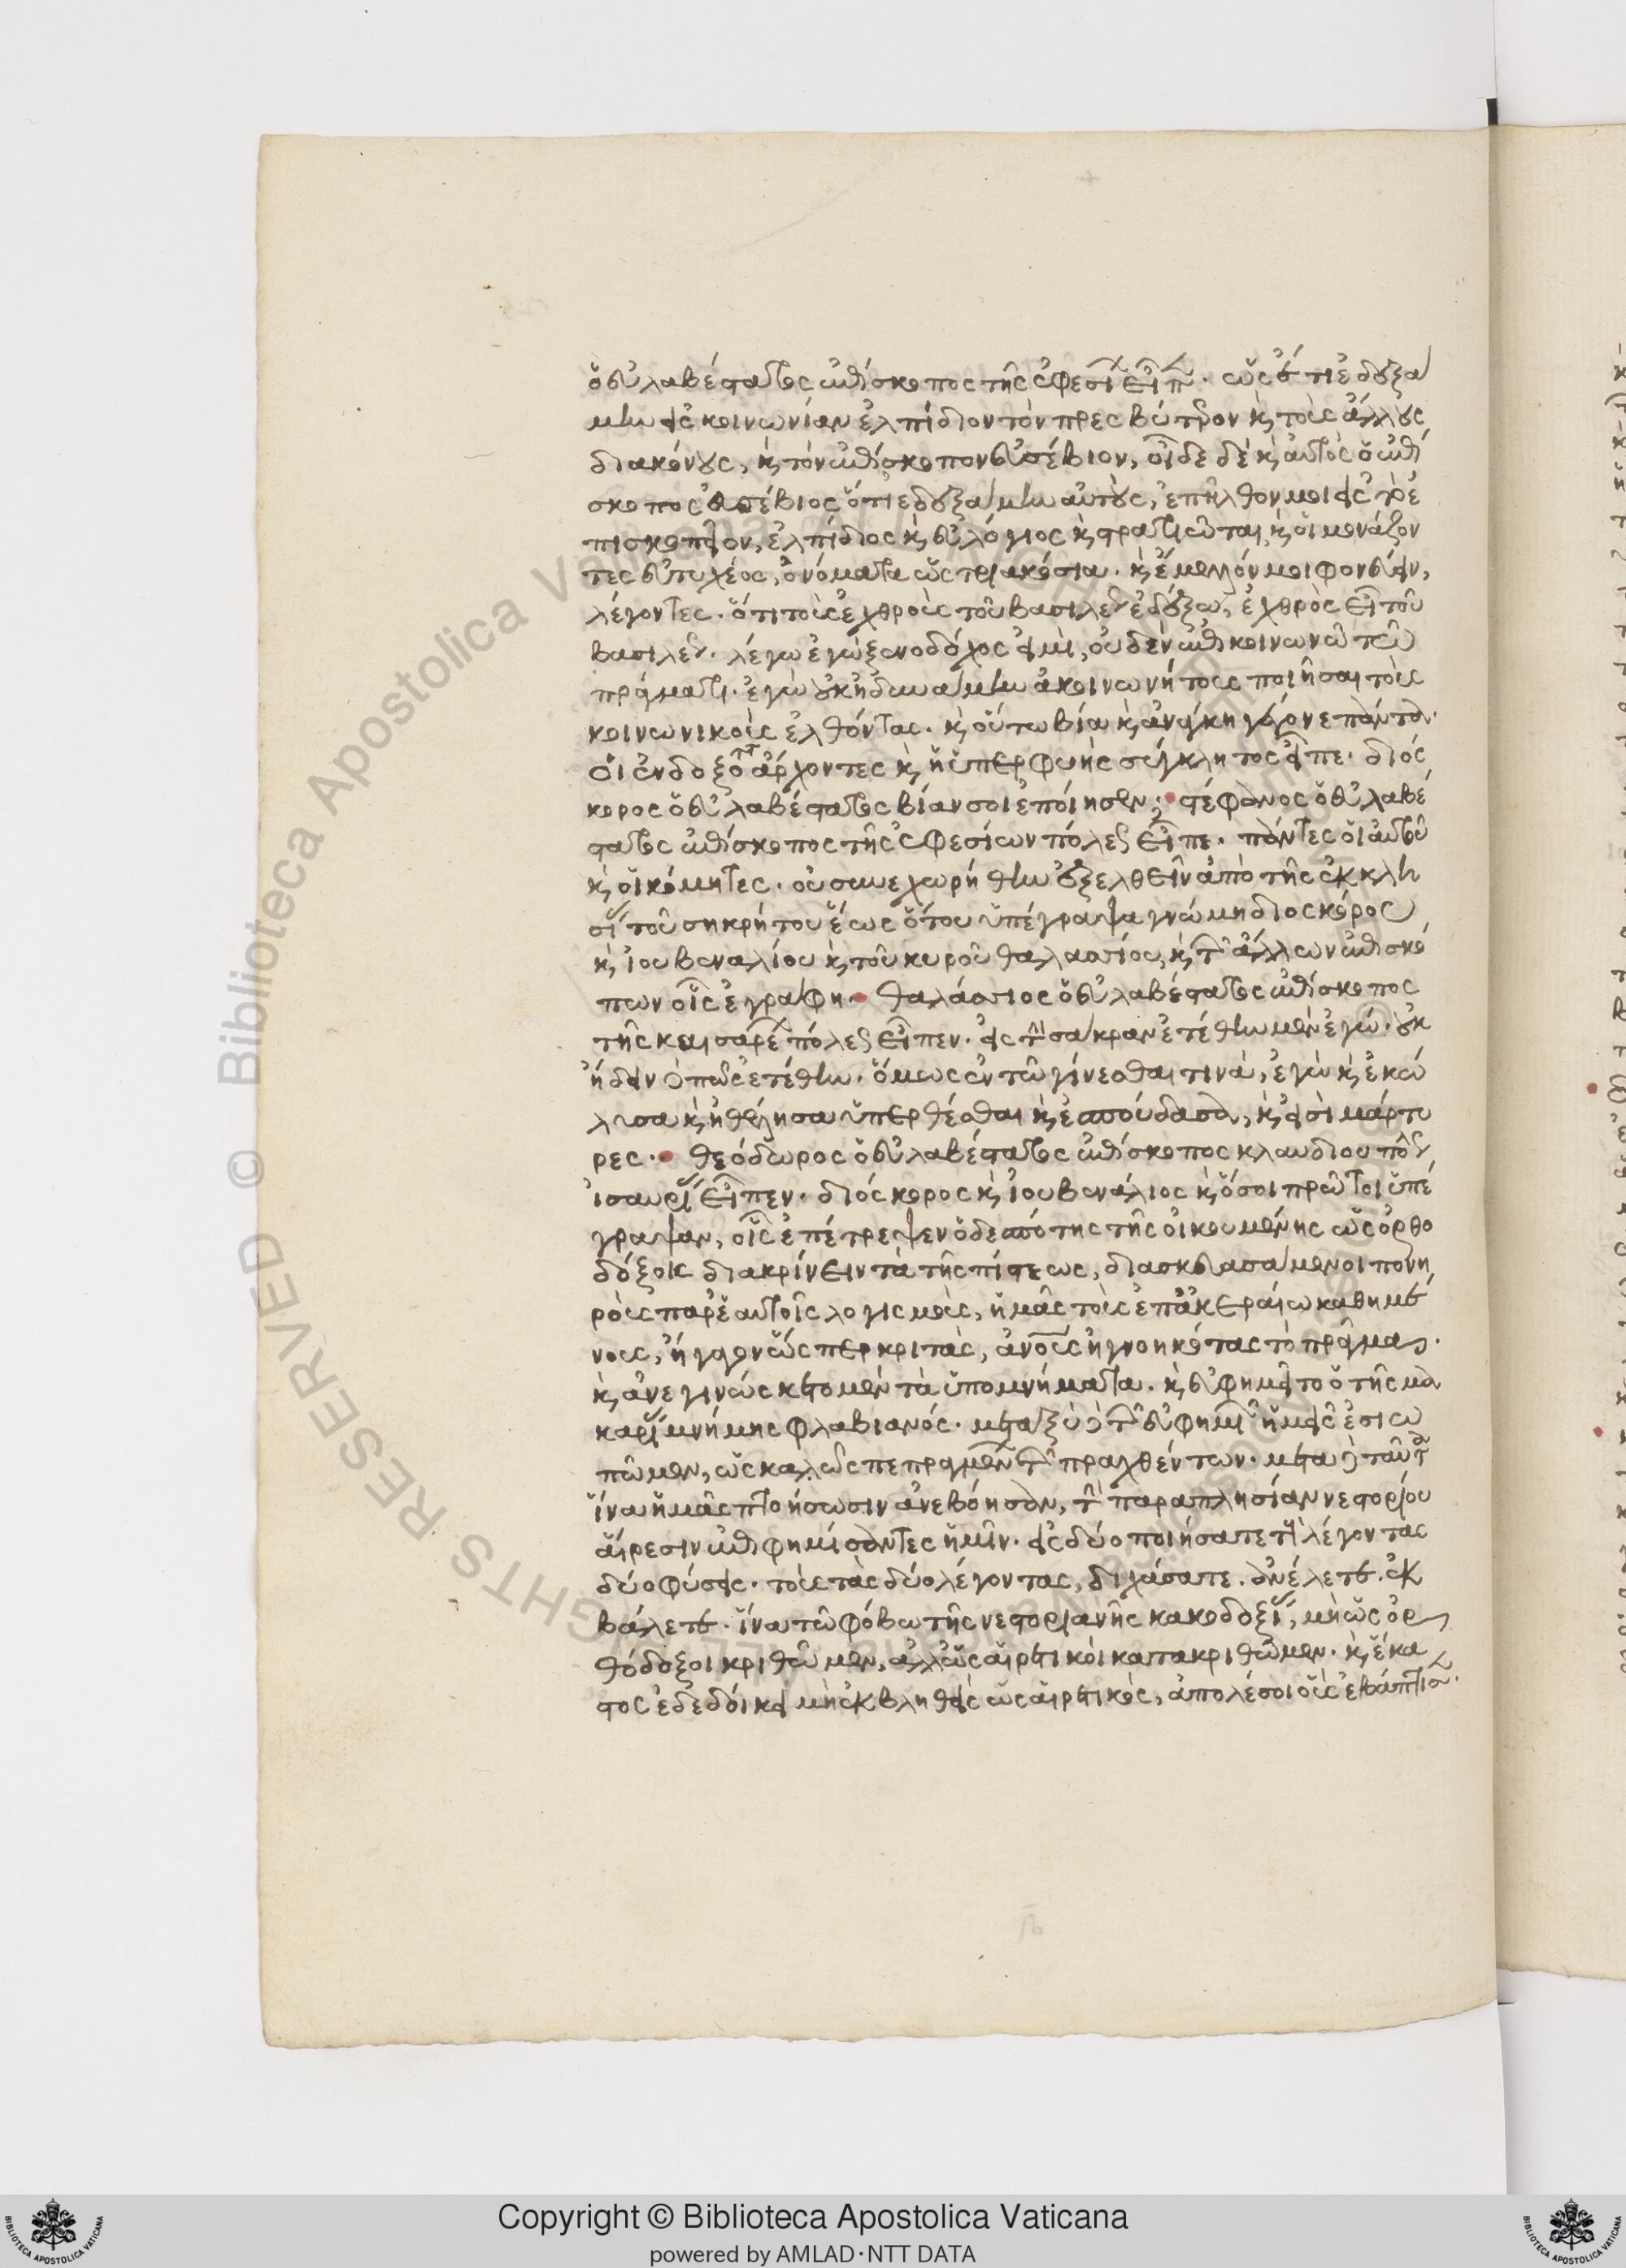 ὁ εὐλαβέστατος ἐπίσκοπος τῆς ἐφεσί εἶπ. ὡς ὅτι ἐδεξά
μην εἰς κοινωνίαν ἐλπίδιον τὸν πρεσβύτερον κ τοὺς ἄλλους
διακόνους, κ τὸν ἐπίσκοπον εὐσέβιον, οἶδε δὲ κ αὐτὸς ὁ ἐπί
σκοπος εὐσέβιος ὅτι ἐδεξάμην αὐτοὺς, ἐπῆλθον μοι εἰς τὸ ἐ
πισκοπεῖον, ἐλπίδιος κ εὐλόγιος κ στρατιῶται, κ οἱ μονάζον
τες εὐτυχέος, ὀνόματα ὡς τριακόσια. κ ἔμελλόν με φονεύειν,
λέγοντες. ὅτι τοὺς ἐχθροὺς τοῦ βασιλέως ἐδέξω, ἐχθρὸς εἶ τοῦ
βασιλέως. λέγω ἐγὼ ξενοδόχος εἰμὶ, οὐδὲν ἐπικοινωνῶ τῶ
πράγματι. ἐγὼ οὐκ ἠδυνάμην ἀκοινωνήτους ποιῆσαι τοὺς
κοινωνικοὺς ἐλθόντας. κ οὕτω βία κ ἀνάγκη γέγονε πάντα.
Οἱ ἐνδοξότ ἄρχοντες κ ἡ ὑπερφυὴς σύγκλητος εἶπε. διόσ
κορος ὁ εὐλαβέστατος βίαν σοι ἐποίησεν; στέφανος ὁ εὐλαβέ
στατος ἐπίσκοπος τῆς ἐφεσίων πόλεως εἶπε. πάντες οἱ αὐτοῦ
κ οἱ κόμητες. οὐ συνεχωρήθην ἐξελθεῖν ἀπὸ τῆς ἐκκλη
σίας τοῦ σηκρήτου ἕως ὅτου ὑπέγραψα γνώμη διοσκόρος
κ ἰουβεναλίου κ τοῦ κυροῦ θαλασσίου, κ τῶν ἄλλων ἐπισκό
πων οἷς ἐγράφη. Θαλάσσιος ὁ εὐλαβέστατος ἐπίσκοπος
τῆς καισαρέ πόλεως εἶπεν. εἰς τὴν σάκραν ἐτέθην μὲν ἐγώ. οὐκ
ἤδειν δὲ πῶς ἐτέθην. ὅμως ἐν τῶ γίνεσθαι τινὰ, ἐγὼ κ ἐκώ
λυσα κ ἠθέλησα ὑπερθέσθαι κ ἐσπούδασα, κ εἰσὶ μάρτυ
ρες. Θεόδωρος ὁ εὐλαβέστατος ἐπίσκοπος κλαυδιουπόλεως
ἰσαυρίας εἶπεν. διόσκορος κ ἰουβενάλιος κ ὅσοι πρῶτοι ὑπέ
γραψαν, οἷς ἐπέτρεψεν ὁ δεσπότης τῆς οἰκουμένης ὡς ὀρθο
δόξοις διακρίνειν τὰ τῆς πίστεως, διασκευασάμενοι πονη
ροὺς παρ ἑαυτοῖς λογισμοὺς, ἡμᾶς τοὺς ἐπ ἀκεραίω καθημέ
νους, ἤγαγον ὥσπερ κριτὰς, ἀνους ἠγνοηκότας τὸ πράγμα.
κ ἀνεγινώσκετο μὲν τὰ ὑπομνήματα. κ εὐφημεῖτο ὁ τῆς μα
καρίας μνήμης φλαβιανός. μεταξὺ δὲ τῶν εὐφημιῶν ἡμεῖς ἐσιω
πῶμεν, ὡς καλῶς πεπραγμένων τῶν πραχθέντων. μετὰ δὲ ταῦτα
ἵνα ἡμᾶς πτοήσωσιν ἀνεβόησαν, τὴν παραπλησίαν νεστορίου
αἵρεσιν ἐπιφημίσαντες ἡμῖν. εἰς δύο ποιήσατε τοὺς λέγοντας
δύο φύσεις. τοὺς τὰς δύο λέγοντας, διχάσατε. ἀνέλετε. ἐκ
βάλετε. ἵνα τῶ φόβω τῆς νεστοριανῆς κακοδοξίας, μὴ ὡς ὀρ
θόδοξοι κριθῶμεν, ἀλλ ὡς αἱρετικοὶ κατακριθῶμεν. κ ἕκα
στος ἐδεδοίκει μὴ ἐκβληθεὶς ὡς αἱρετικὸς, ἀπολέσοι οὓς ἐβάπτισ.